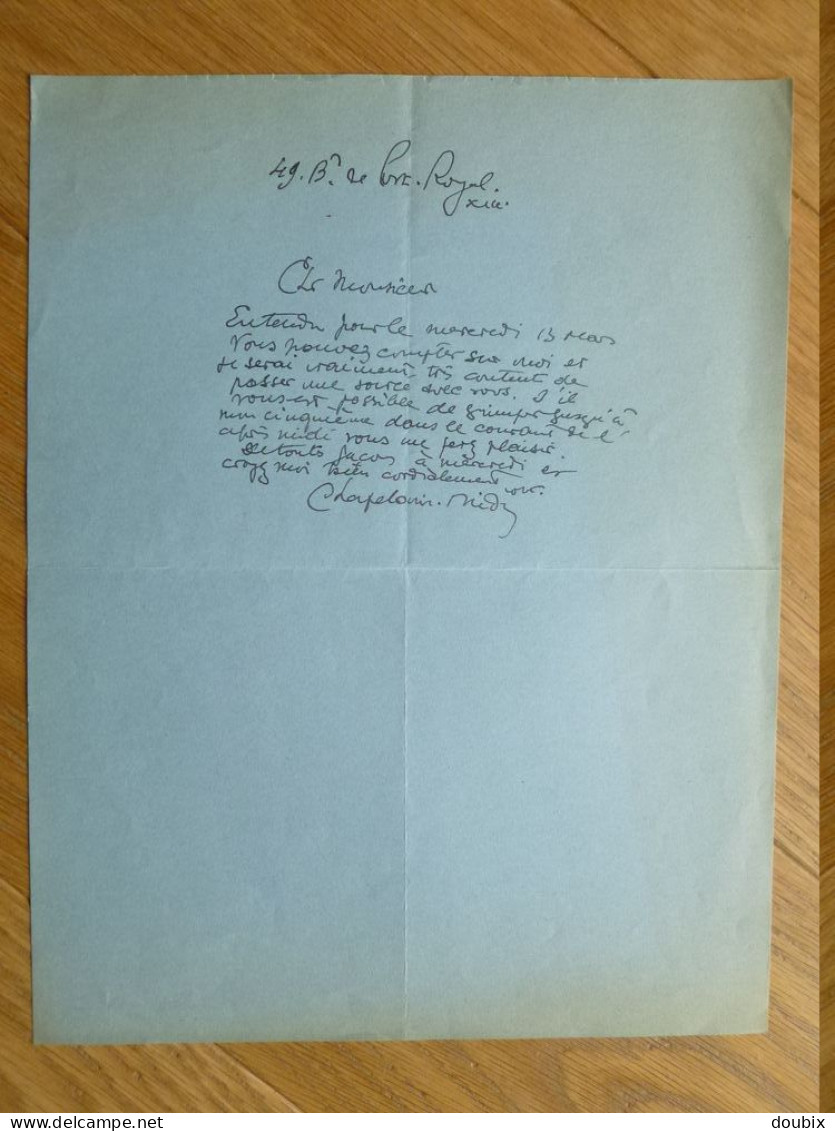 49. Bd. de Port-Royal.
XIII.
Cher Monsieur
Entendu pour le mercredi 13 Mars
Vous pouvez compter sur moi et
je serai vraiment très content de
passer une soirée avec vous. S'il
vous est possible de grimper jusqu'à
mon cinquième dans le courant de l'
après midi vous me ferez plaisir.
De toute façon à mercredi et
croyez moi bien cordialement vôtre.
Chapelain-Midy
doubix